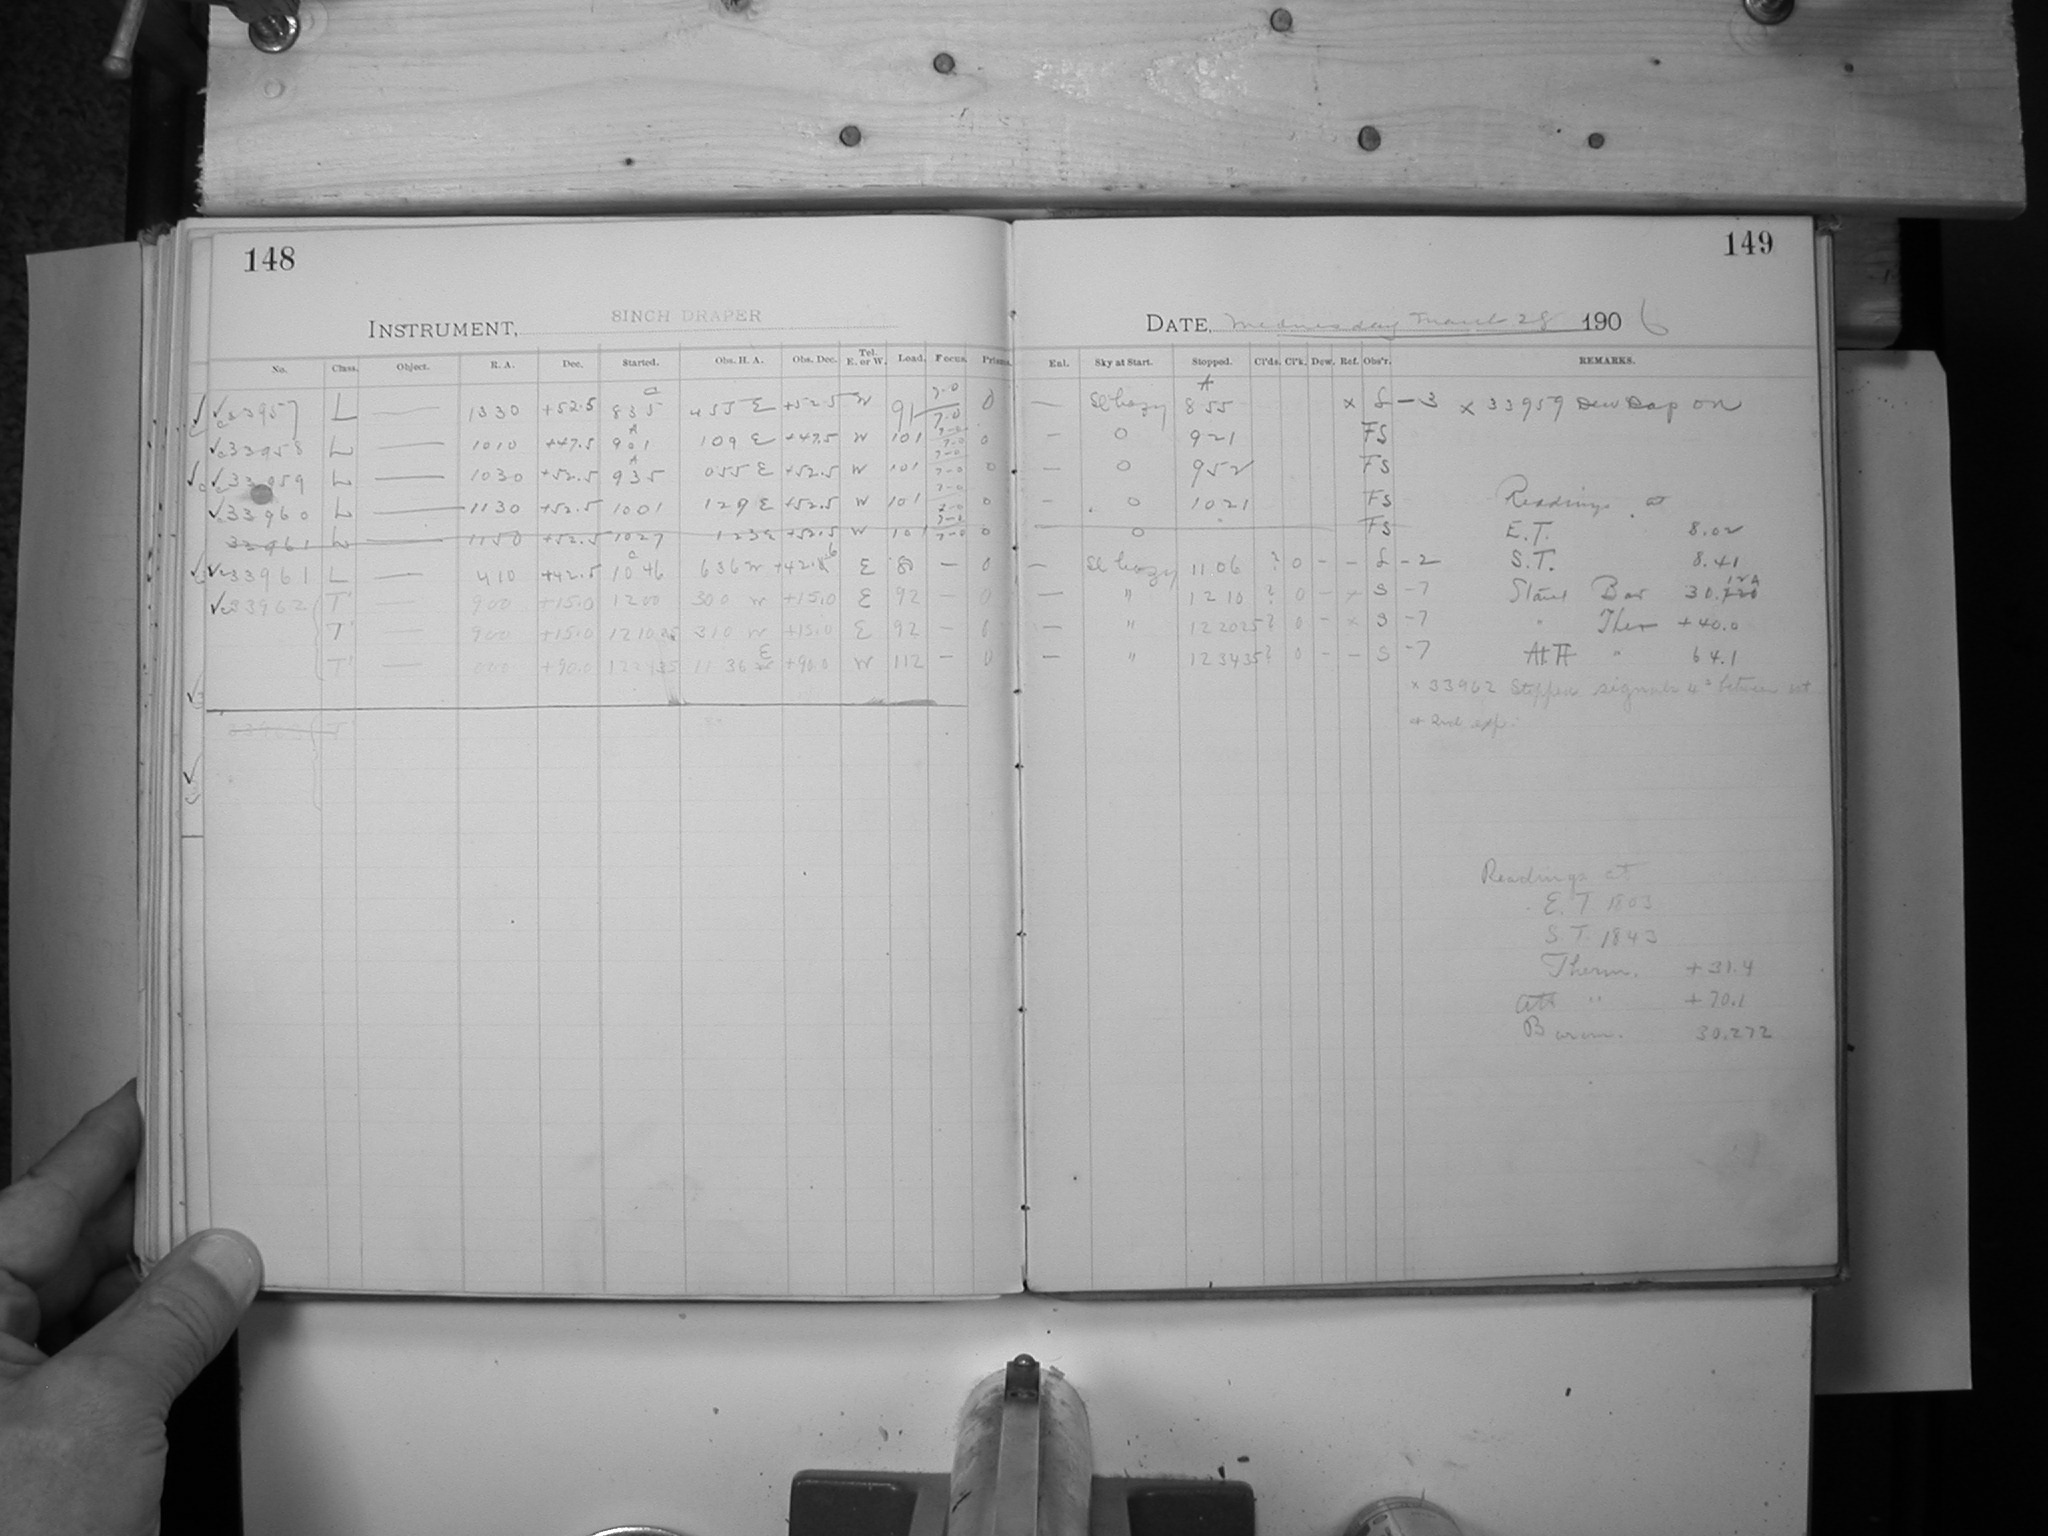 148
INSTRUMENT, 8INCH DRAPER
No. Class. Object. R. A. Dec. Started. Obs. H. A. Obs. Dec. Tel. E. or W. Load. Focus. Prisms.
33957 L — 1330 +52.5 835 455 E +52.5 W 91 7-0 7-0 0
33958 L — 1010 +47.5 901 109 E +47.5 W 101 7-0 7-0 0
33959 L — 1030 +52.5 935 055 E +52.5 W 101 7-0 0
33960 L — 1130 +52.5 1001 129 E +52.5 W 101 7-0 0
33961 L — 1150 +52.5 1027 123 E +52.5 W 101 7-0 7-0 0
33961 L — 410 +42.5 1046 636 W +42. E — 0
33962 T' 900 +15.0 1200 300 W +15.0 E 92 — 0
T' — 900 +15.0 121025 310 W +15.0 E 92 — 0
T' — 000 +90.0 122435 1136 E +90.0 W 112 — 0
149
DATE, Wednesday March 28 1906
Enl. Sky at Start. Stopped. Cl'ds. Cl'k. Dew. Ref. Obs'r. REMARKS.
— Sl hazy A 855 x S -3 x 33959 Dew Cap on
— 0 921 FS
— 0 952 FS
— 0 1021 FS Readings at
— 0 FS E.T. 8.02
— Sl hazy 1106 ? 0 - - S -2 S.T. 8.41
— " 1210 ? 0 - x S -7 Stand Bar 30.
— " 122025 ? 0 - x S -7 " Ther +40.0
— " 123435 ? 0 - - S -7 Att " 64.1
x 33962 Stopped signals 4s between 1st
+ 2nd exp.
Readings at
E.T. 1803
S.T. 1843
Therm. +31.4
Att " +70.1
Barom. 30.272